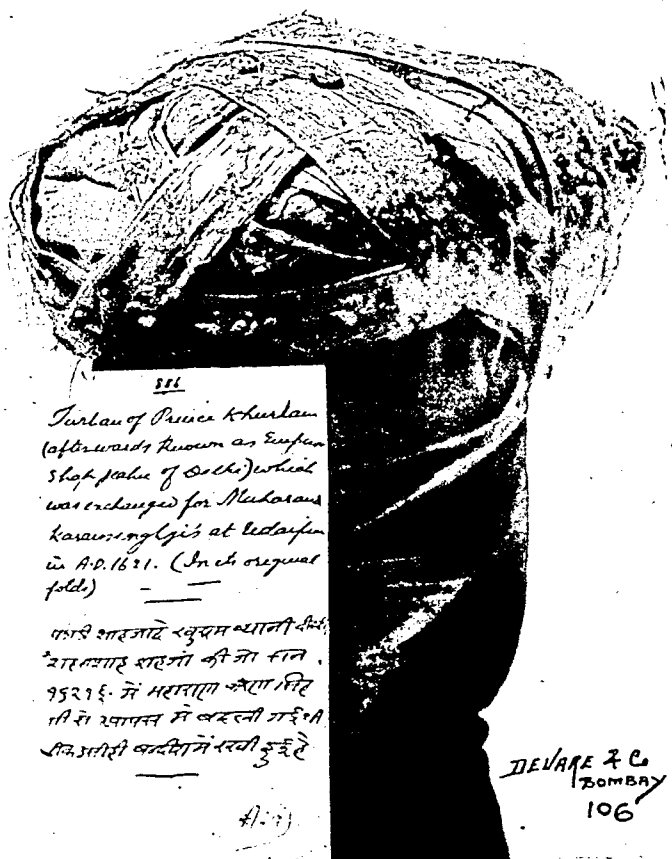 886
Turban of Prince Khurram
(afterwards known as Emperor
Shah Jeahn of Delhi) which
was exchanged for Maharana
Karansinghji's at Udaipur
in A.D. 1621. (In its original
folds)
पगडी शाहजादे खुर्रम यानी
शहनशाह शाहजां की जो
१६२१ ई. में महाराणा करण सिंह
जी से आपस में बदली गई थी
बन्दिश में रखी हुई है
DEVARE & Co
BOMBAY
106